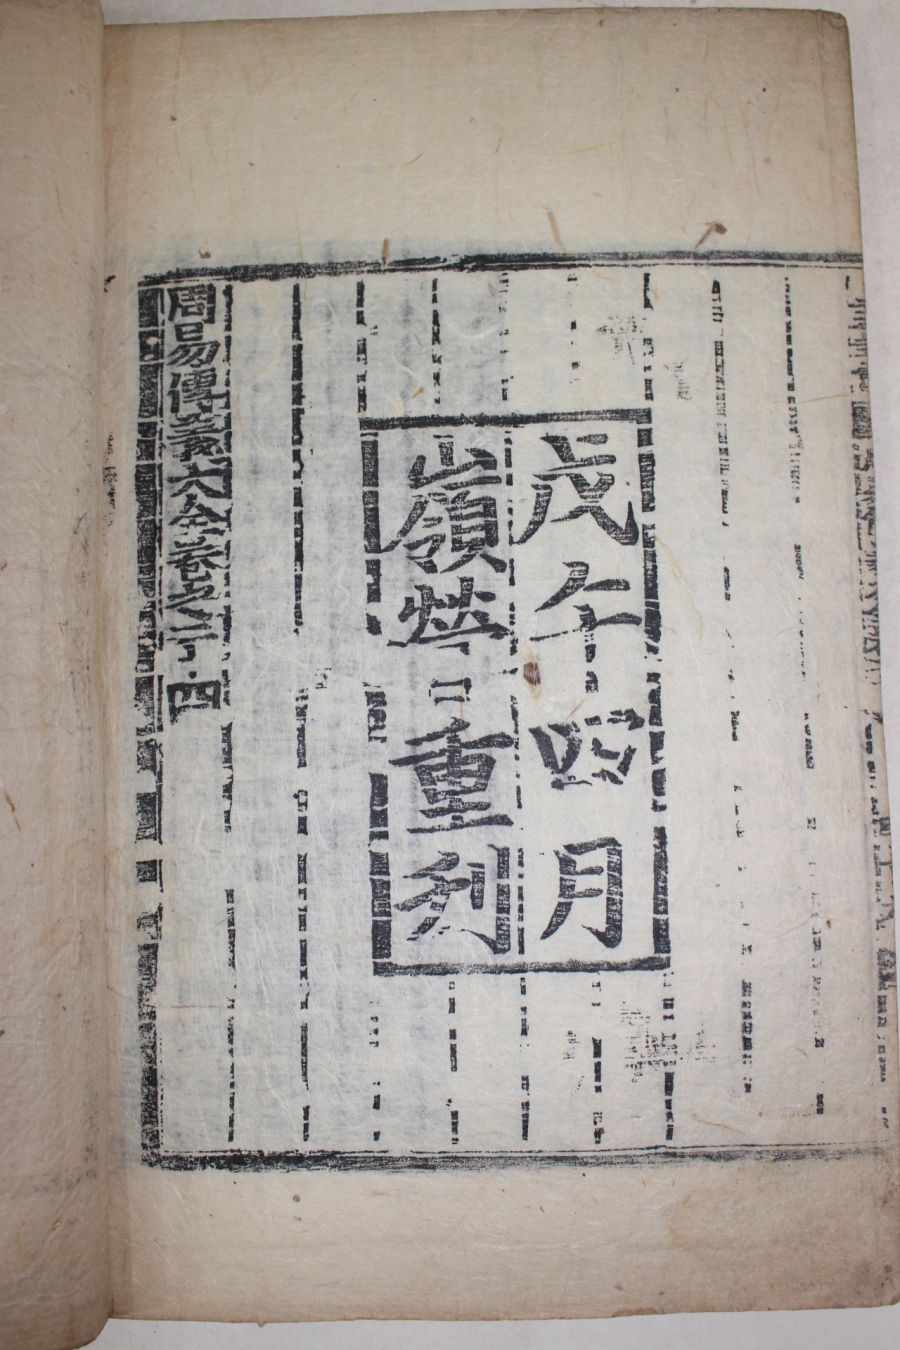 戊午月
嶺營重刊
周易傳義大全卷之二十四